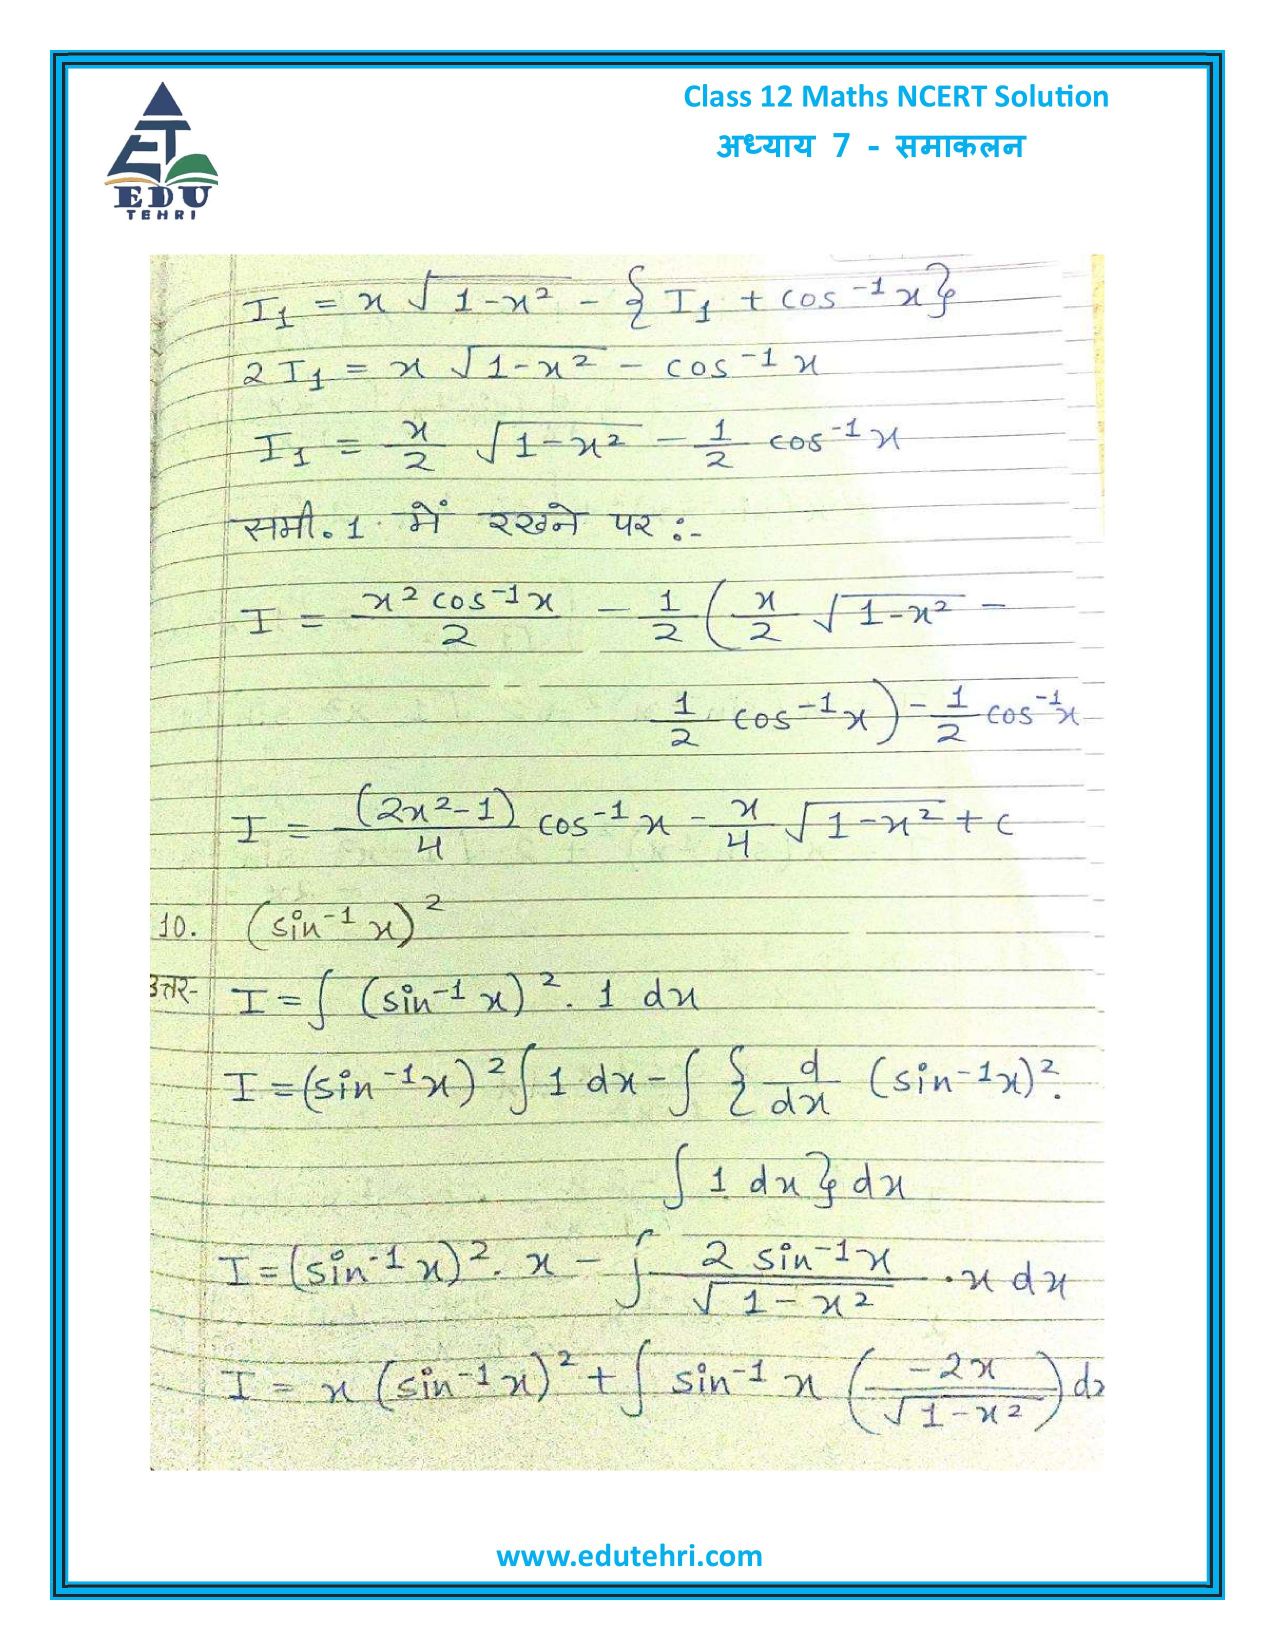 Class 12 Maths NCERT Solution
अध्याय 7 - समाकलन
EDU
TEHRI
I₁ = x √(1-x²) - {I₁ + cos⁻¹x}
2I₁ = x √(1-x²) - cos⁻¹x
I₁ = x/2 √(1-x²) - 1/2 cos⁻¹x
समी.1 में रखने पर:-
I = x² cos⁻¹x/2 - 1/2 (x/2 √(1-x²) -
1/2 cos⁻¹x) - 1/2 cos⁻¹x
I = (2x²-1)/4 cos⁻¹x - x/4 √(1-x²) + c
10. (sin⁻¹x)²
उत्तर- I = ∫ (sin⁻¹x)² . 1 dx
I = (sin⁻¹x)² ∫ 1 dx - ∫ { d/dx (sin⁻¹x)².
∫ 1 dx} dx
I = (sin⁻¹x)². x - ∫ 2 sin⁻¹x/√(1-x²) . x dx
I = x (sin⁻¹x)² + ∫ sin⁻¹x (-2x/√(1-x²)) dx
www.edutehri.com